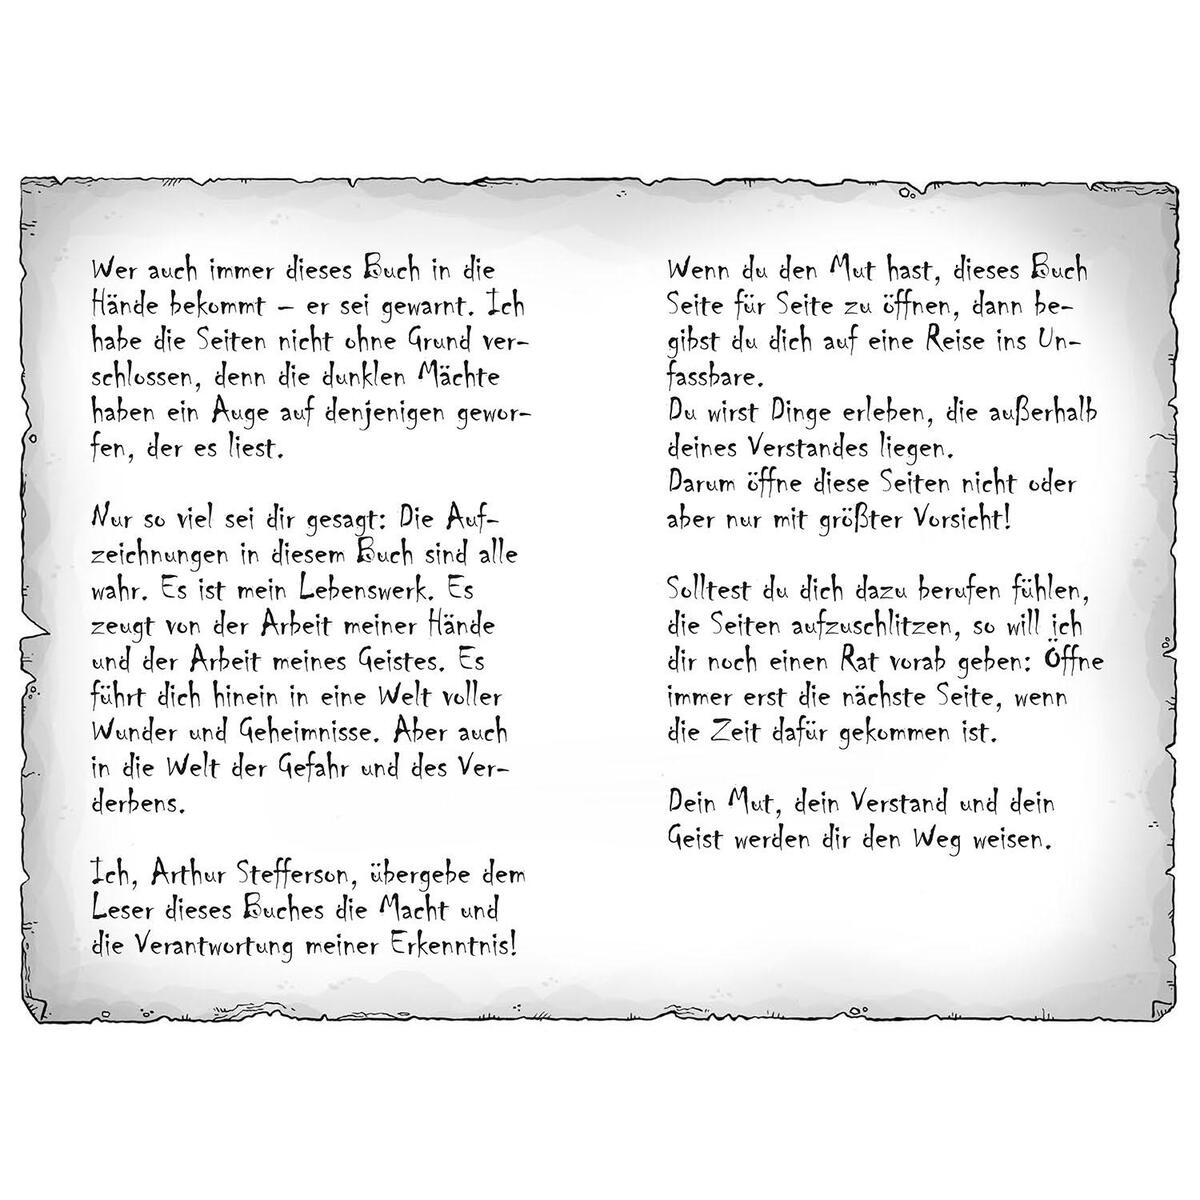 Wer auch immer dieses Buch in die
Hände bekommt – er sei gewarnt. Ich
habe die Seiten nicht ohne Grund ver-
schlossen, denn die dunklen Mächte
haben ein Auge auf denjenigen gewor-
fen, der es liest.
Nur so viel sei dir gesagt: Die Auf-
zeichnungen in diesem Buch sind alle
wahr. Es ist mein Lebenswerk. Es
zeugt von der Arbeit meiner Hände
und der Arbeit meines Geistes. Es
führt dich hinein in eine Welt voller
Wunder und Geheimnisse. Aber auch
in die Welt der Gefahr und des Ver-
derbens.
Ich, Arthur Stefferson, übergebe dem
Leser dieses Buches die Macht und
die Verantwortung meiner Erkenntnis!
Wenn du den Mut hast, dieses Buch
Seite für Seite zu öffnen, dann be-
gibst du dich auf eine Reise ins Un-
fassbare.
Du wirst Dinge erleben, die außerhalb
deines Verstandes liegen.
Darum öffne diese Seiten nicht oder
aber nur mit größter Vorsicht!
Solltest du dich dazu berufen fühlen,
die Seiten aufzuschlitzen, so will ich
dir noch einen Rat vorab geben: Öffne
immer erst die nächste Seite, wenn
die Zeit dafür gekommen ist.
Dein Mut, dein Verstand und dein
Geist werden dir den Weg weisen.